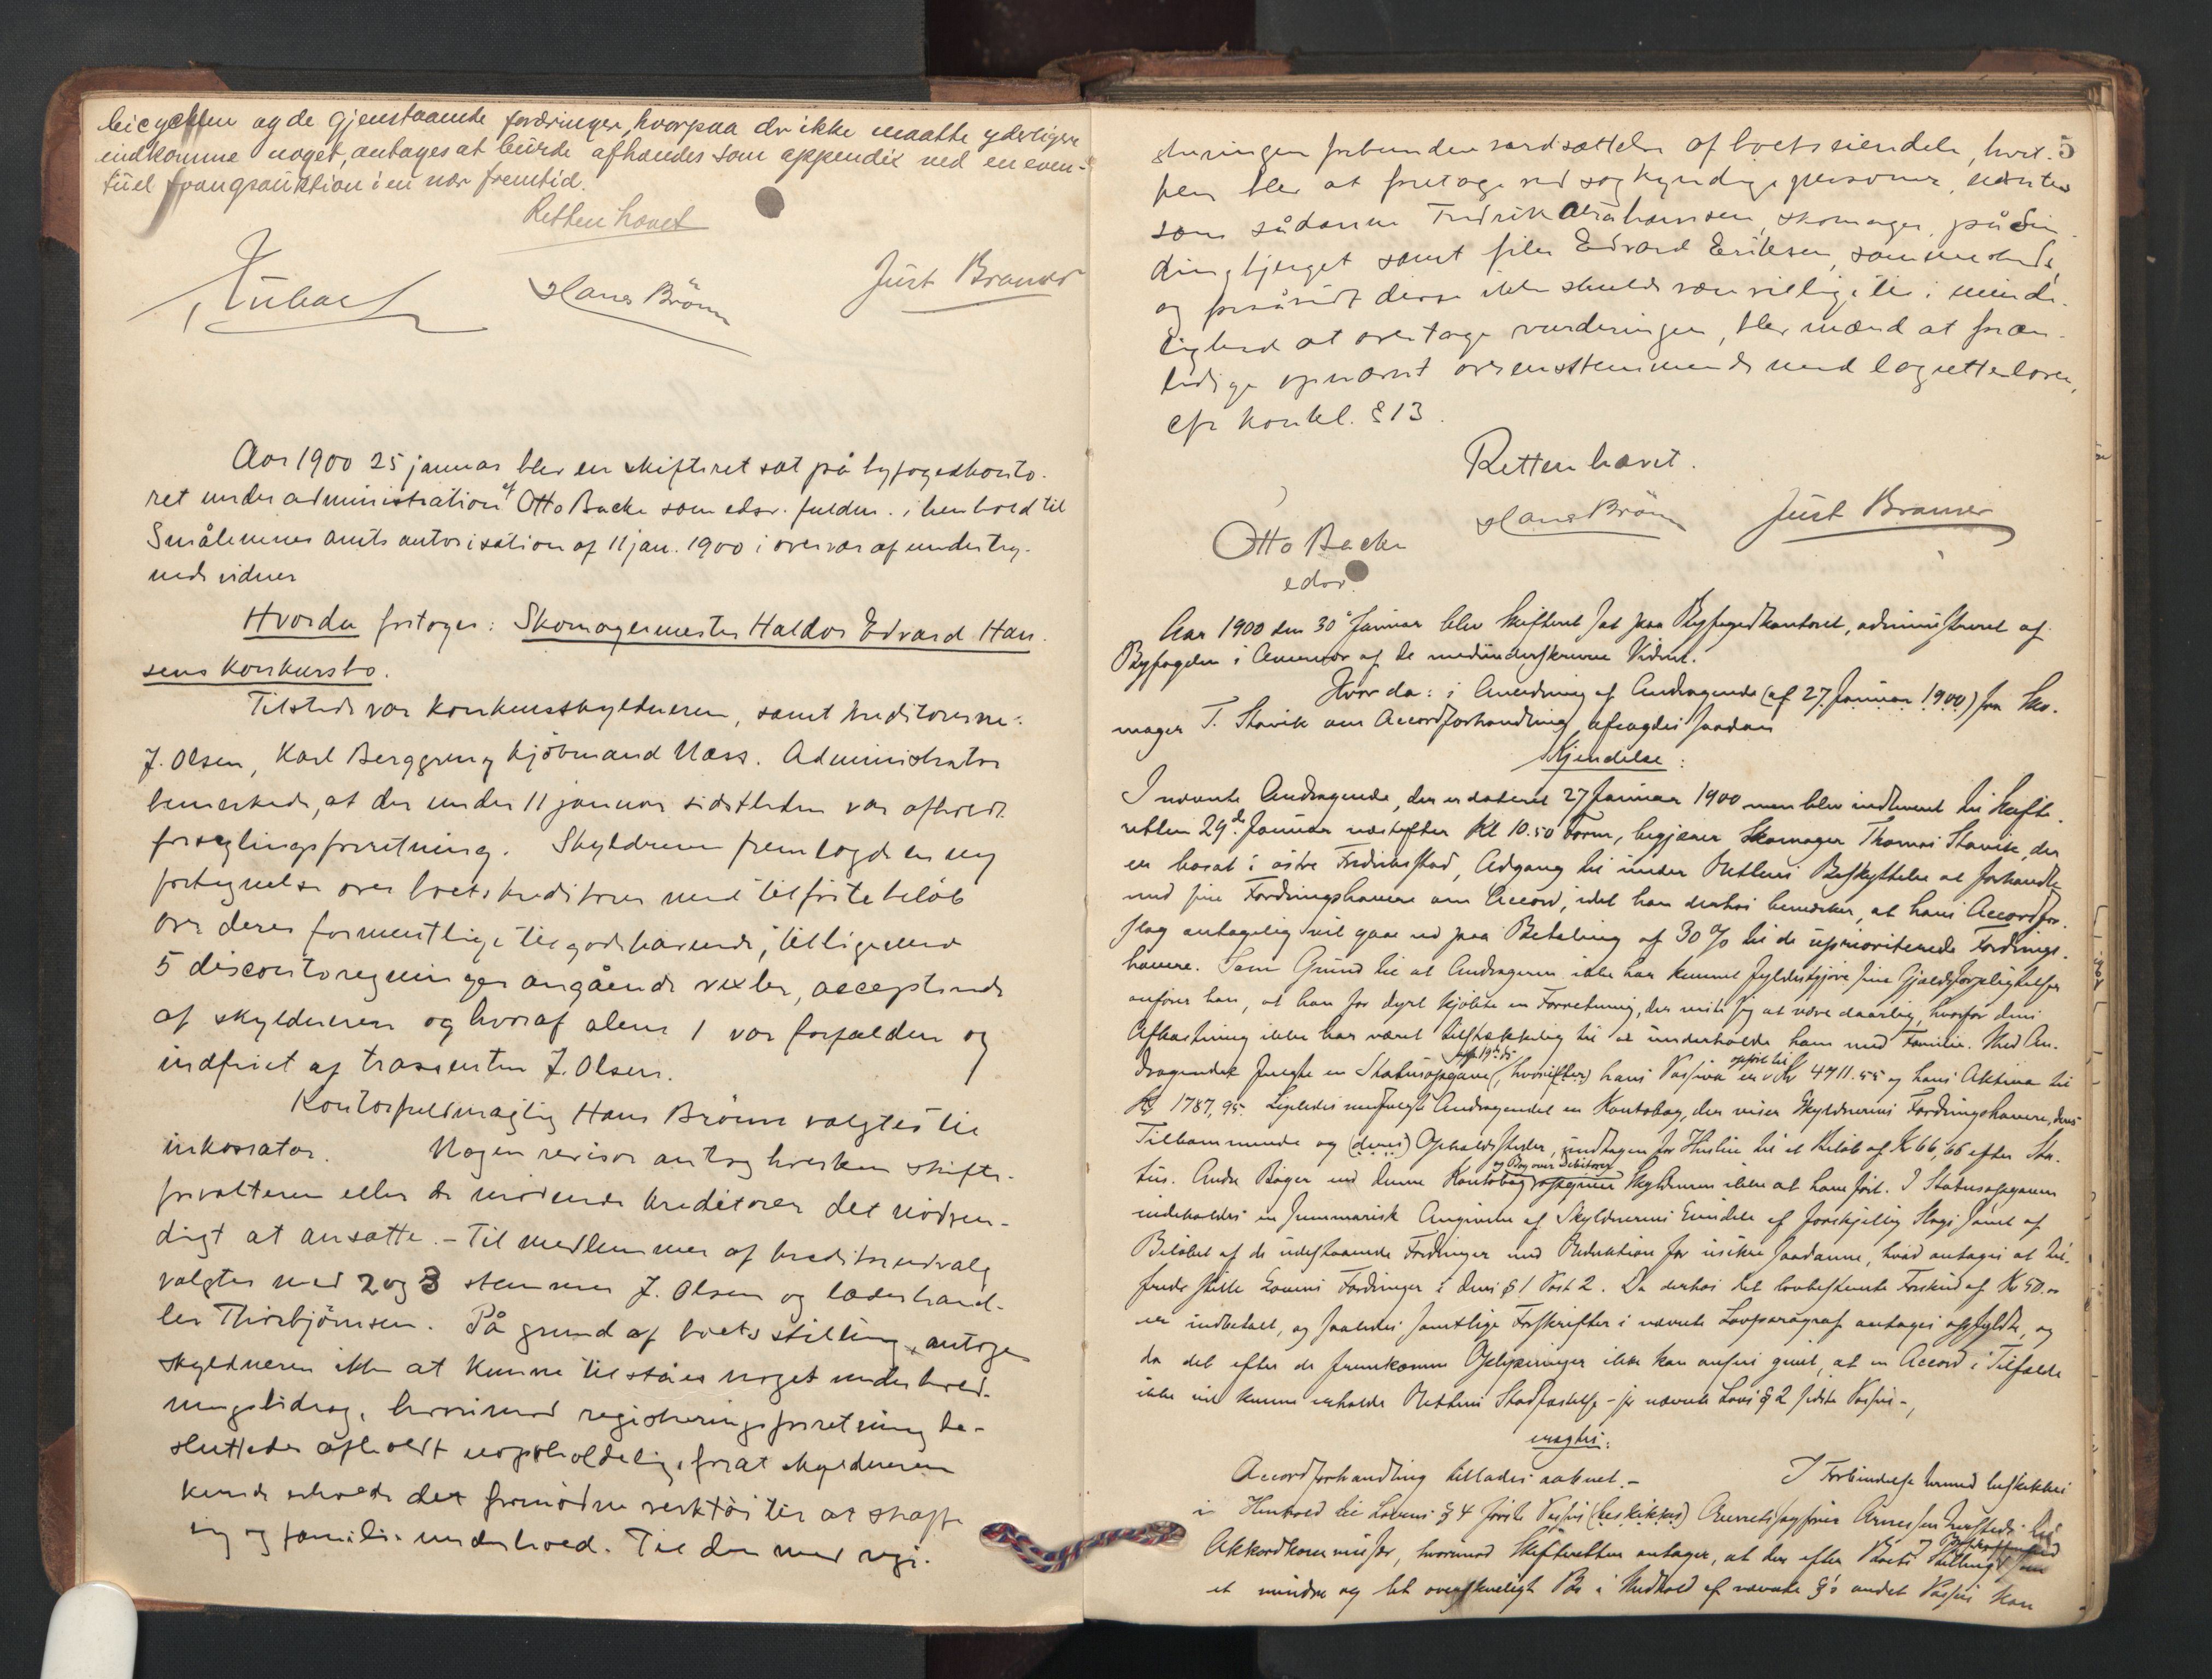 bicyclen og de gjenstaaende fordringer, hvorpaa der ikke maatte yderligere
indkomme noget, antages at burde afhændes som appendix ved en even-
tuel tvangsauktion i en nær fremtid.
Retten hævet
Hans Brönn
Just Braner
Aar 1900 25 januar blev en skifteret sat på byfogedkonto-
ret under administration af Otto Backe som edsv. fuldm. i henhold til
Smålenenes amts autorisation af 11 jan. 1900 i overvær af undteg-
nede vidner
Hvorda foretoges: Skomagermester Haldor Edvard Han-
sens konkursbo.
Tilstede var konkursskyldneren, samt kreditorerne:
J. Olsen, Karl Berggren og kjöbmand Næss. Administrator
bemærkede, at der under 11 januar sidstleden var afholdt
forseglingsforretning. Skyldneren fremlagde en ny
fortegnelse over boets kreditorer med tilføiet beløb
over deres formentlige tilgodehavende, tilligemed
5 discontoregninger angående vexler, accepterede
af skyldneren og hvoraf alene 1 var forfalden og
indfriet af trassenten J. Olsen.
Kontorfuldmægtig Hans Brönn valgtes til
inkassator. Nogen revisor antog hverken skifte-
forvalteren eller de mødende kreditorer det nødven-
digt at ansætte. – Til medlemmer af kreditorudvalg
valgtes med 2 og 3 stemmer J. Olsen og læderhand-
ler Thorbjörnsen. På grund af boets stilling antoges
skyldneren ikke at kunne tilståes noget underhold-
ningsbidrag, hvorimod registreringsforretning be-
sluttedes afholdt uopholdelig, forat skyldneren
kunde erholde det fornødne verktöi til at skaffe
sig og familie underhold. Til den med regi-
5
streringen forbundne værdsættelse af boets eiendele, hvil-
ken blev at foretage ved sagkyndige personer, udsøgtes
som sådanne Fredrik Abrahamsen, skomager, på Sin
dingbjerget samt filer Edvard Eriksen, sammesteds,
og forsåvidt disse ikke skulde være villige til i minde-
lighed at overtage vurderingen, blev mænd at foran-
ledige opnævnt overensstemmende med lagrettelov,
cfr konkl. § 13.
Retten hævet.
Otto Backe
edsv.
Hans Brönn
Just Braner
Aar 1900 den 30 Januar blev Skifteret sat paa Byfogedkontoret, administreret af
Byfogden i Overvær af de medunderskrevne Vidner.
Hvor da: i Anledning af Andragende (af 27 Januar 1900) fra Sko-
mager T. Stavik om Accordforhandling afsagdes saadan
Kjendelse:
I nævnte Andragende, der er dateret 27 Januar 1900 men blev indleveret til Skifte-
retten 29de Januar næstefter Kl 10.50 Form, begjærer Skomager Thomas Stavik, der
er bosat i östre Fredrikstad, Adgang til under Rettens Beskyttelse at forhandle
med sine Fordringshavere om Accord, idet han derhos bemærker, at hans Accordfor-
slag antagelig vil gaa ud paa Betaling af 30 % til de uprioriterede Fordrings-
havere. Som Grund til at Andrageren ikke har kunnet fyldestgjøre sine Gjældsforpligtelser
anfører han, at han for dyrt kjöbte en Forretning, der viste sig at være daarlig, hvorfor dens
Afkastning ikke har været tilstrækkelig til at underholde ham med Familie. Med An-
dragendet fulgte en Statusopgave, hvorefter hans Passiva er opført til Kr 4711.55 og hans Aktiva til
Kr 1787,95. Ligeledes medfulgte Andragendet en Kontobog, der viser Skyldnerens Fordringshavere, deres
Tilkommende og (deres) Opholdssteder, undtagen for Husleie til et Beløb af Kr 66,66 efter Sta-
tus. Andre Böger end denne Kontobog og Bog over Debitorer opgiver Skyldneren ikke at have fört. I Statusopgaven
indeholdes en summarisk Angivelse af Skyldnerens Eiendele af forskjellig Slags samt af
Beløbet af de udestaaende Fordringer med Reduktion for usikre saadanne, hvad antages at til-
fredsstille Lovens Fordringer i dens § 1 Post 2. Da derhos det lovbestemte Forskud af Kr 50.00
er indbetalt, og saaledes samtlige Forskrifter i nævnte Lovparagraf antages opfyldte, og
da det efter de fremkomne Oplysninger ikke kan ansees givet, at en Accord i Tilfælde
ikke vil kunne erholde Rettens Stadfæstelse – jfr nævnte Lovs § 2 sidste Passus –,
eragtes:
Accordforhandling tillades aabnet. – I Forbindelse hermed beskikkes
i Henhold til Lovens § 4 förste Passus (beskikkes) Overretssagfører Arnesen herstedes til
Akkordkommissær, hvorimod Skifteretten antager, at der efter Boets Stilling og Beskaffenhed som
et mindre og let overskueligt Bo i Medhold af nævnte §'s andet Passus kan